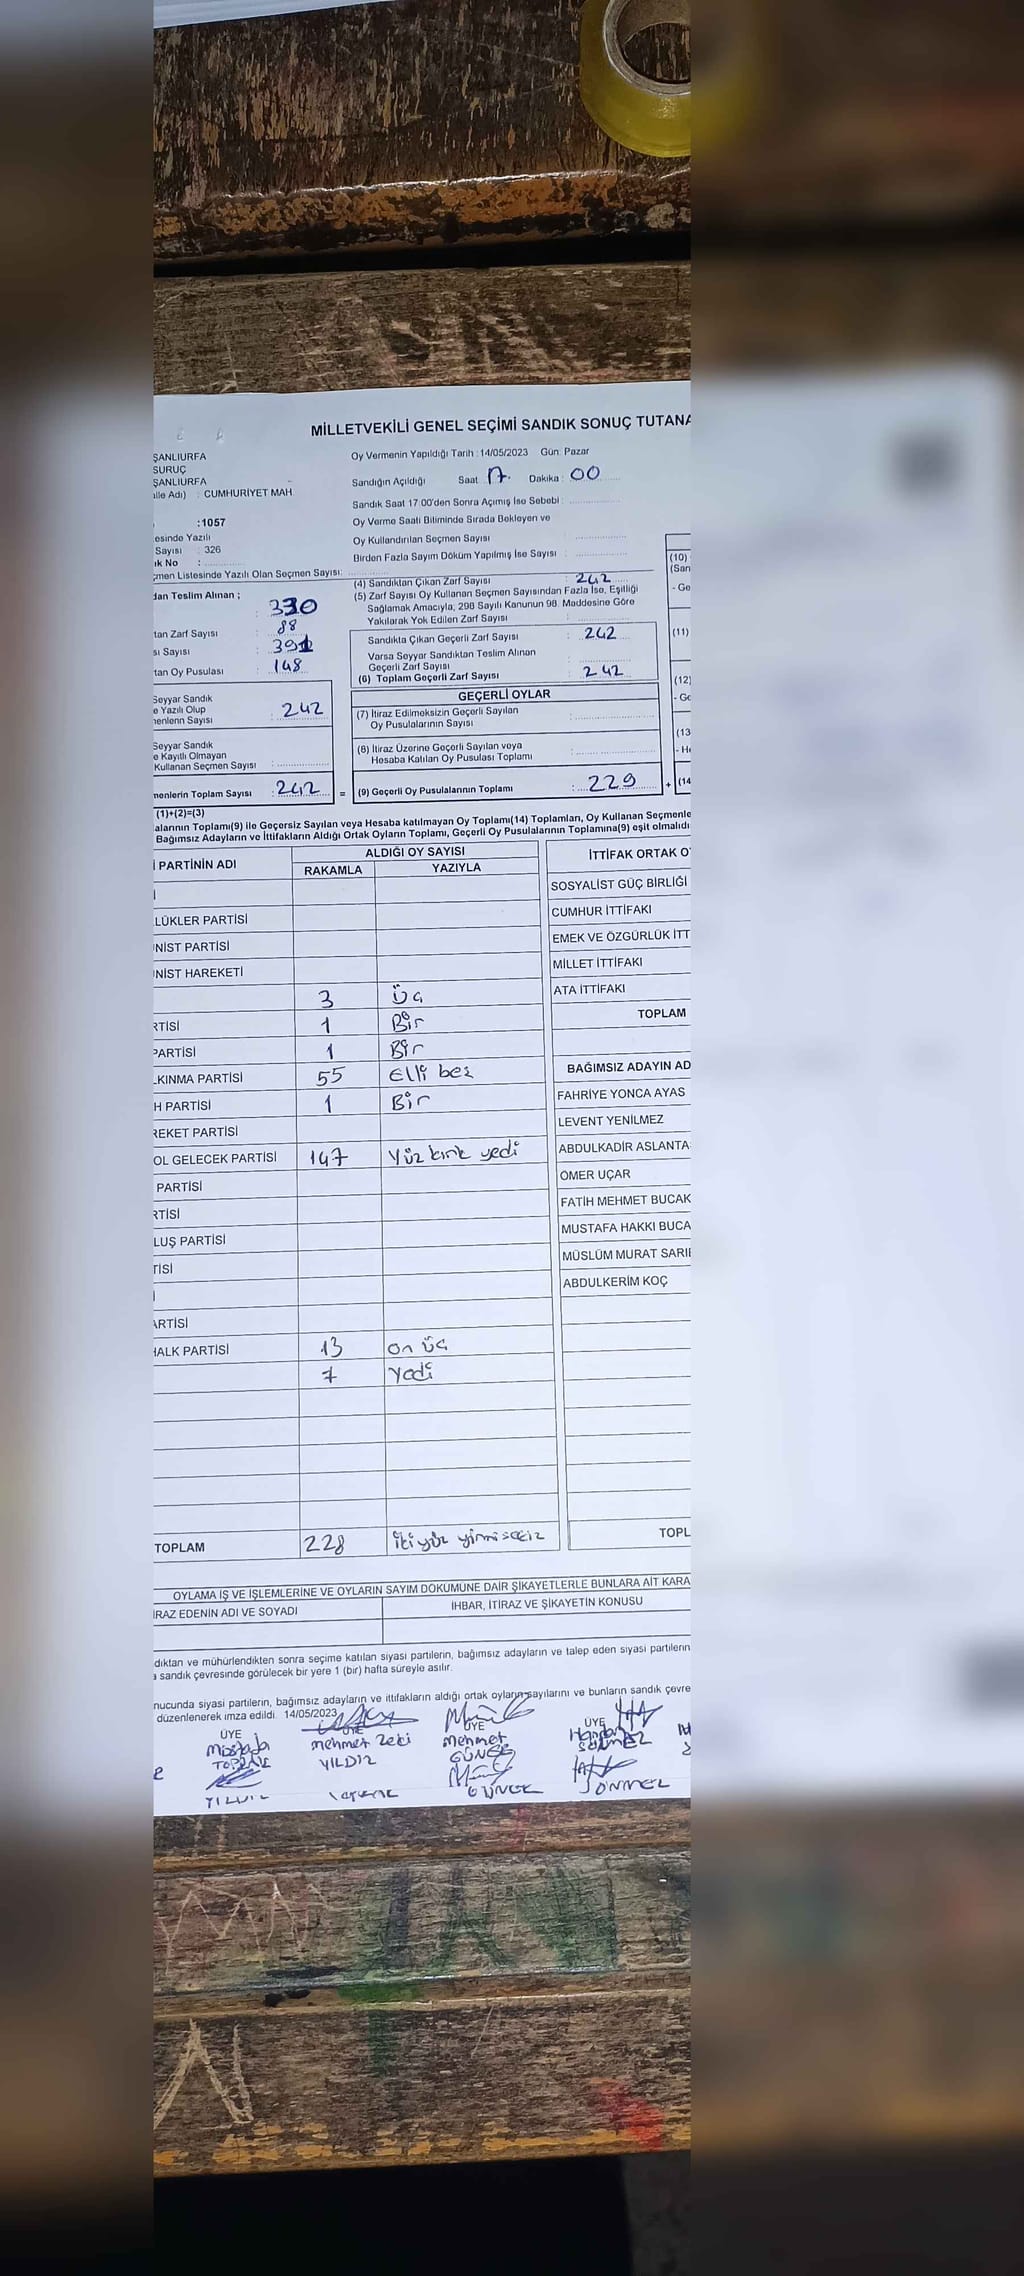 MİLLETVEKİLİ GENEL SEÇİMİ SANDIK SONUÇ TUTANA
ŞANLIURFA
SURUÇ
ŞANLIURFA
lle Adı) : CUMHURİYET MAH
:1057
esinde Yazılı
Sayısı : 326
ık No :
çmen Listesinde Yazılı Olan Seçmen Sayısı:
Oy Vermenin Yapıldığı Tarih : 14/05/2023 Gün: Pazar
Sandığın Açıldığı Saat 17. Dakika : 00
Sandık Saat 17:00'den Sonra Açımış İse Sebebi :
Oy Verme Saati Bitiminde Sırada Bekleyen ve
Oy Kullandırılan Seçmen Sayısı
Birden Fazla Sayım Döküm Yapılmış İse Sayısı :
dan Teslim Alınan ;
: 330
tan Zarf Sayısı : 88
sı Sayısı :
tan Oy Pusulası : 148
(4) Sandıktan Çıkan Zarf Sayısı : 242
(5) Zarf Sayısı Oy Kullanan Seçmen Sayısından Fazla İse, Eşitliği
Sağlamak Amacıyla; 298 Sayılı Kanunun 98. Maddesine Göre
Yakılarak Yok Edilen Zarf Sayısı :
Sandıkta Çıkan Geçerli Zarf Sayısı : 242
Varsa Seyyar Sandıktan Teslim Alınan
Geçerli Zarf Sayısı
(6) Toplam Geçerli Zarf Sayısı : 242
Seyyar Sandık
e Yazılı Olup
nenlerın Sayısı : 242
Seyyar Sandık
e Kayıtlı Olmayan
Kullanan Seçmen Sayısı :
nenlerin Toplam Sayısı : 242 =
(1)+(2)=(3)
GEÇERLİ OYLAR
(7) İtiraz Edilmeksizin Geçerli Sayılan
Oy Pusulalarının Sayısı :
(8) İtiraz Üzerine Geçerli Sayılan veya
Hesaba Katılan Oy Pusulası Toplamı :
(9) Geçerli Oy Pusulalarının Toplamı : 229 +
(10)
(San
- Ge
(11)
(12)
- Ge
(13
- He
(14
alarının Toplamı(9) ile Geçersiz Sayılan veya Hesaba katılmayan Oy Toplamı(14) Toplamları, Oy Kullanan Seçmenle
Bağımsız Adayların ve İttifakların Aldığı Ortak Oyların Toplamı, Geçerli Oy Pusulalarının Toplamına(9) eşit olmalıdı
İ PARTİNİN ADI ALDIĞI OY SAYISI
RAKAMLA YAZIYLA
LÜKLER PARTİSİ
NİST PARTİSİ
NİST HAREKETİ
3 Üç
RTİSİ 1 Bir
PARTİSİ 1 Bir
LKINMA PARTİSİ 55 Elli beş
H PARTİSİ 1 Bir
REKET PARTİSİ
OL GELECEK PARTİSİ 147 Yüz kırk yedi
PARTİSİ
RTİSİ
LUŞ PARTİSİ
TİSİ
ARTİSİ
HALK PARTİSİ 13 on üç
7 Yedi
TOPLAM 228 ikiyüz yirmisekiz
İTTİFAK ORTAK O
SOSYALİST GÜÇ BİRLİĞİ
CUMHUR İTTİFAKI
EMEK VE ÖZGÜRLÜK İTT
MİLLET İTTİFAKI
ATA İTTİFAKI
TOPLAM
BAĞIMSIZ ADAYIN AD
FAHRİYE YONCA AYAS
LEVENT YENİLMEZ
ABDULKADİR ASLANTA
ÖMER UÇAR
FATİH MEHMET BUCAK
MUSTAFA HAKKI BUCA
MÜSLÜM MURAT SARI
ABDULKERİM KOÇ
TOPL
OYLAMA İŞ VE İŞLEMLERİNE VE OYLARIN SAYIM DÖKÜMÜNE DAİR ŞİKAYETLERLE BUNLARA AİT KARA
İRAZ EDENİN ADI VE SOYADI İHBAR, İTİRAZ VE ŞİKAYETİN KONUSU
dıktan ve mühürlendikten sonra seçime katılan siyasi partilerin, bağımsız adayların ve talep eden siyasi partilerin
a sandık çevresinde görülecek bir yere 1 (bir) hafta süreyle asılır.
nucunda siyasi partilerin, bağımsız adayların ve ittifakların aldığı ortak oyların sayılarını ve bunların sandık çevre
düzenlenerek imza edildi. 14/05/2023
ÜYE ÜYE ÜYE ÜYE
Mehmet Zeki Mehmet
YILDIZ GÜNEŞ SÖNMEZ
SÖNMEZ